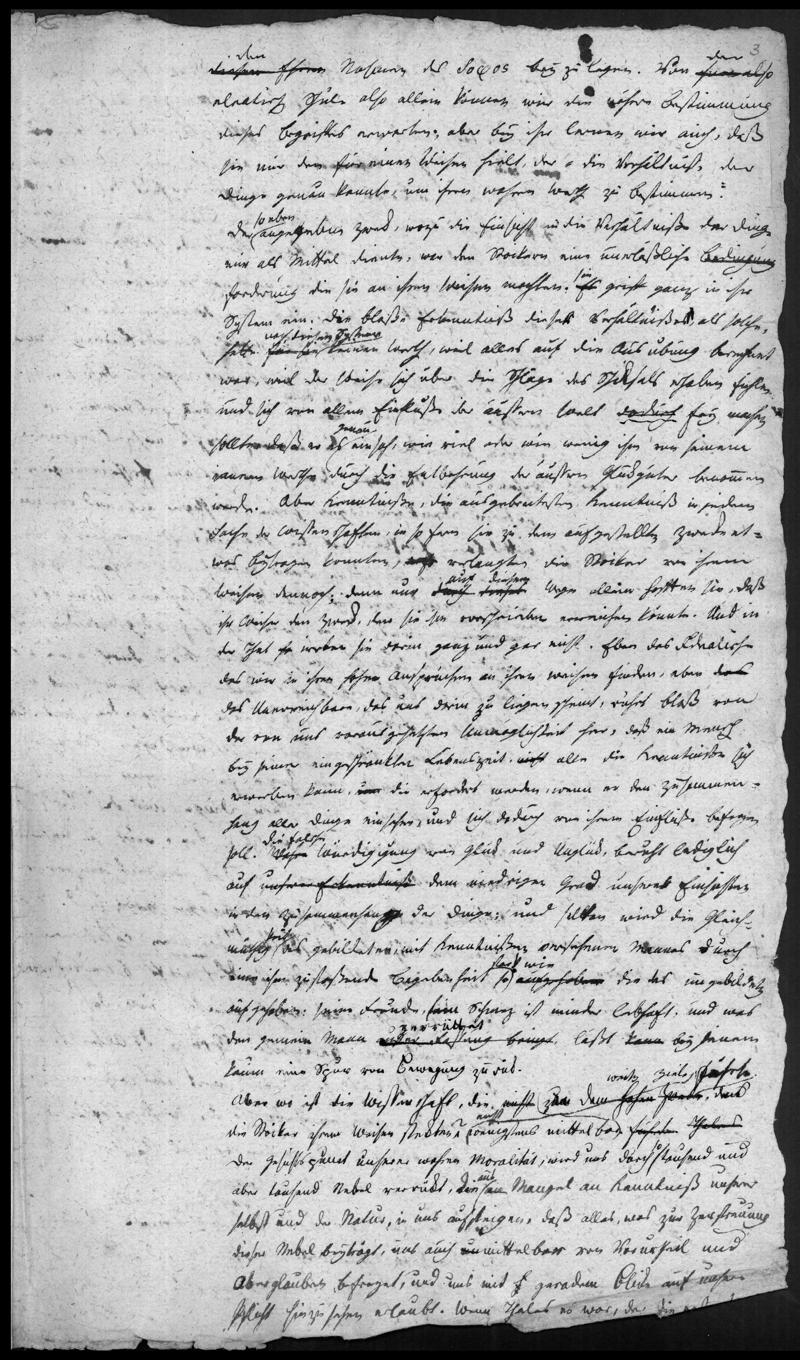 3
den
diesen Ehren Nahmen des Σοφος beyzulegen. Von der also
eleatisch Schule also allein können wir die nähere Bestimmung
dieses Begriffes erwarten, aber bey ihr lernen wir auch, daß
sie nur den für einen Weisen hielt, der die Verhältniße der
Dinge genau kannte, um ihren wahren Werth zu bestimmen.
so eben
Der angegebene Zweck, wozu die Einsicht in die Verhältniße der Dinge
nur als Mittel diente, war den Stoickern eine unerläßliche Bedingung
Forderung die sie an ihren Weisen machten. Es greift ganz in ihr
System ein. Die bloße Erkenntniß dieser Verhältniße, als solche,
nach diesem System
hatte für sie keinen Werth, weil alles auf die Ausübung berechnet
war, weil der Weise sich über die Schläge des Schicksals erhaben fühlen
und sich von allem Einfluße der äussern Welt dadurch frey machen
genau
sollte daß er es einsah, wie viel oder wie wenig ihm von seinem
innern Werthe durch die Entbehrung der äussern Glücksgüter benommen
werde. Aber Kenntniße, die ausgebreitesten Kenntniß in jedem
Fache der Wissenschaften, in so fern sie zu dem aufgestellten Zwecke et=
was beytragen konnten, verlangten die Stoiker von ihrem
auf diesem
Weisen dennoch; denn nur durch dieses Wege allein hofften sie, daß
ihr Weiser den Zweck, den sie ihm vorschrieben erreichen könnte. Und in
der That so irrten sie darin ganz und gar nicht. Eben das Idealische
das wir in ihren hohen Ansprüchen an ihren Weisen finden, eben das
das Unerreichbare, das uns darin zu liegen scheint, rührt bloß von
der von uns vorausgesetzten Unmöglichkeit her, daß ein Mensch
bey seiner eingeschränkten Lebenszeit nicht alle die Kenntniße sich
erwerben kann, die erfordert werden, wenn er den Zusammen=
hang aller Dinge einsehen, und sich dadurch von ihrem Einfluße befreyen
die falsche
soll. Würdigung von Glück und Unglück, beruht lediglich
auf unserer Erkenntniß dem niedrigen Grad unserer Einsichten
in den Zusammenhang der Dinge; und selten wird die Gleich=
müthigkeit des gebildeten, mit Kenntnißen versehenen Mannes durch
stark wie
eine ihm zustoßende Begebenheit so aufgehoben die des ungebildeten
aufgehoben: seine Freude, sein Schmerz ist minder lebhaft, und was
zerrüttet
den gemeinen Mann außer Fassung bringt, läßt kann bey jenem
kaum eine Spur von Bewegung zurück.
weit Ziele, führte
Aber wo ist die Wissenschaft, die nicht zu dem hohen Zwecke, das
nicht
die Stoiker ihrem Weisen steckten? wenigstens mittelbar führte Thales
Der Gesichtspunct unserer wahren Moralität, wird uns durch tausend und
aus
aber tausend Nebel verrückt, die Mangel an Kenntniß unserer
selbst und der Natur, in uns aufsteigen, daß alles, was zur Zerstreuung
dieser Nebel beyträgt, uns auch unmittelbar von Vorurtheil und
Aberglauben befreyet, und uns mit geradem Blicke auf unsere
Pflicht hinzusehen erlaubt. Wenn Thales es war, der die